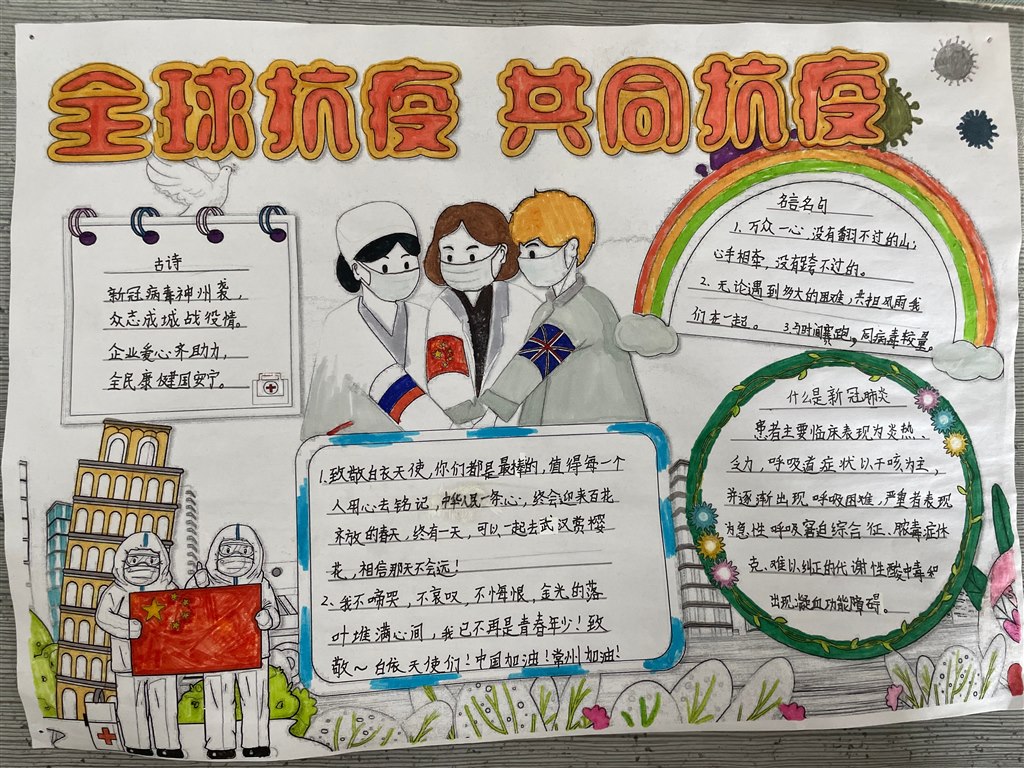 全球抗疫 共同抗疫
古诗
新冠病毒神州袭，
众志成城战役情。
企业爱心齐助力，
全民康健国安宁。
名言名句
1. 万众一心，没有翻不过的山；
心手相牵，没有跨不过的。
2. 无论遇到多大的困难，共担风雨我
们在一起。 3.与时间赛跑，同病毒较量。
1.致敬白衣天使，你们都是最棒的，值得每一个
人用心去铭记，中华人民一条心，终会迎来百花
齐放的春天，终有一天，可以一起去武汉赏樱
花，相信那天不会远！
2、我不啼哭，不哀叹，不悔恨，金光的落
叶堆满心间，我已不再是青春年少！致
敬～白衣天使们！中国加油！常州加油！
什么是新冠肺炎
患者主要临床表现为炎热、
乏力，呼吸道症状以干咳为主，
并逐渐出现呼吸困难，严重者表现
为急性呼吸窘迫综合征、脓毒症休
克、难以纠正的代谢性酸中毒和
出现凝血功能障碍。